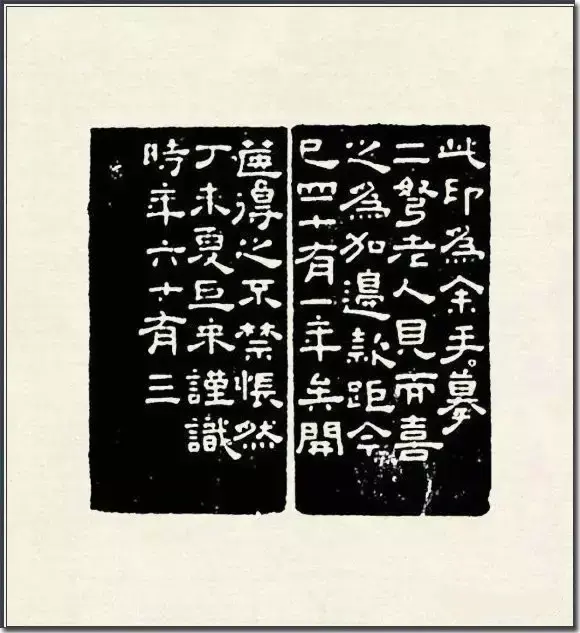 此印為余手摹
二弩老人見而喜
之為加邊款距今
已四十有一年矣開
得之不禁悵然
丁未夏巨來謹識
時年六十有三